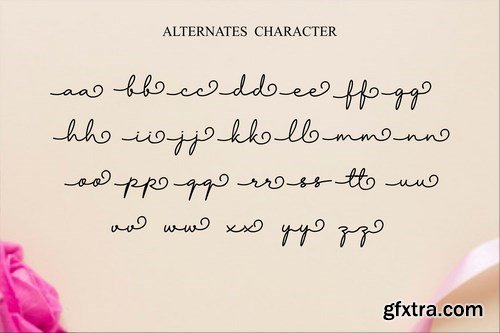 ALTERNATES CHARACTER
aa bb cc dd ee ff gg
hh ii jj kk ll mm nn
oo pp qq rr ss tt uu
vv ww xx yy zz
gfxtra.com